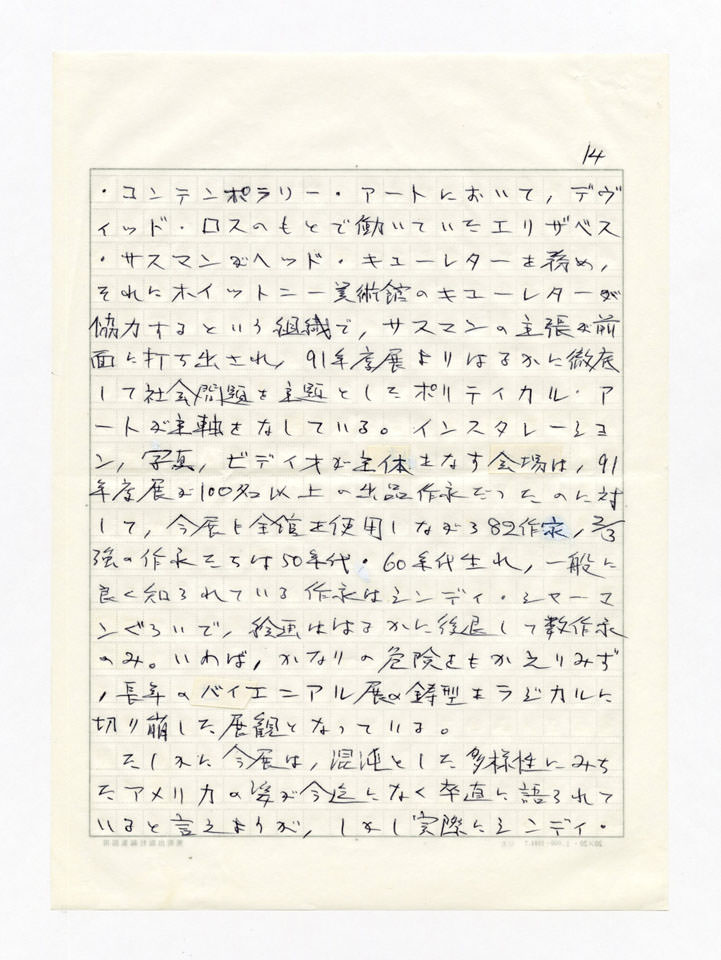 14
・コンテンポラリー・アートにおいて，デヴ
ィッド・ロスのもとで働いていたエリザベス
・サスマンがヘッド・キューレターを務め，
それにホイットニー美術館のキューレターが
協力するという組織で，サスマンの主張が前
面に打ち出され，91年度展よりはるかに徹底
して社会問題を主題としたポリティカル・ア
ートが主軸をなしている。インスタレーショ
ン，写真，ビディオが主体をなす会場は，91
年度展が100名以上の出品作家だったのに対
して，今展は全館を使用しながら82作家，2/3
強の作家たちは50年代・60年代生れ，一般に
良く知られている作家はシンディ・シャーマ
ンぐらいで，絵画ははるかに後退して数作家
のみ。いわば，かなりの危険をもかえりみず
，長年のバイエニアル展の鋳型をラジカルに
切り崩した展観となっている。
たしかに今展は，混沌とした多様性にみち
たアメリカの姿が今迄になく率直に語られて
いると言えようが，しかし実際にシンディ・